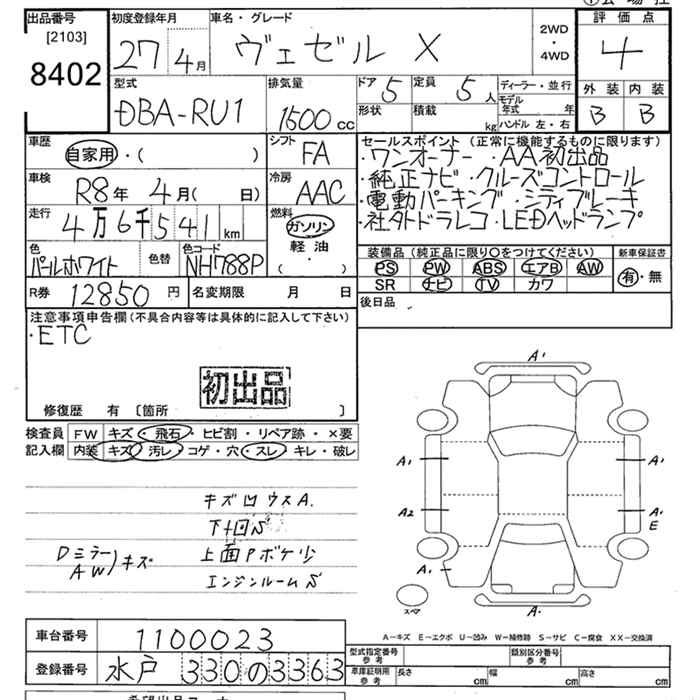 出品番号
[2103]
8402
初度登録年月
27 4月
車名・グレード
ヴェゼル X
2WD
・
4WD
評価点
4
外装 内装
B B
型式
DBA-RU1
排気量
1500cc
ドア 5
定員 5人
形状
積載 kg
ディーラー・並行
モデル年式 年
ハンドル 左・右
車歴
自家用・( )
シフト
FA
車検
R8年 4月( 日)
冷房
AAC
走行
4万6千541km
燃料
ガソリン
軽油
( ・ )
色
パールホワイト
色替
色コード
NH788P
R券 12850円
名変期限 月 日
セールスポイント(正常に機能するものに限ります)
・ワンオーナー ・AA初出品
・純正ナビ ・クルーズコントロール
・電動パーキング ・シティブレーキ
・社外ドラレコ ・LEDヘッドランプ
装備品(純正品に限り○をつけてください)
PS PW ABS エアB AW
SR ナビ TV カワ
新車保証書
有・無
後日品
注意事項申告欄(不具合内容等は具体的に記入して下さい)
・ETC
初出品
修復歴 有 〔箇所 〕
検査員記入欄
FW キズ・飛石・ヒビ割・リペア跡・×要
内装 キズ・汚レ・コゲ・穴・スレ・キレ・破レ
キズ凹ウスA.
下廻S
Dミラー
AW)キズ
上面Pボケ少
エンジンルームS
A'
A' A'
A2 A'
E
A.
スペア
A.
A-キズ E-エクボ U-凹み W-補修跡 S-サビ C-腐食 XX-交換済
車台番号 1100023
登録番号 水戸 330の3363
型式指定番号
参考
類別区分番号
参考
車庫証明用
参考
長さ cm 幅 cm 高さ cm